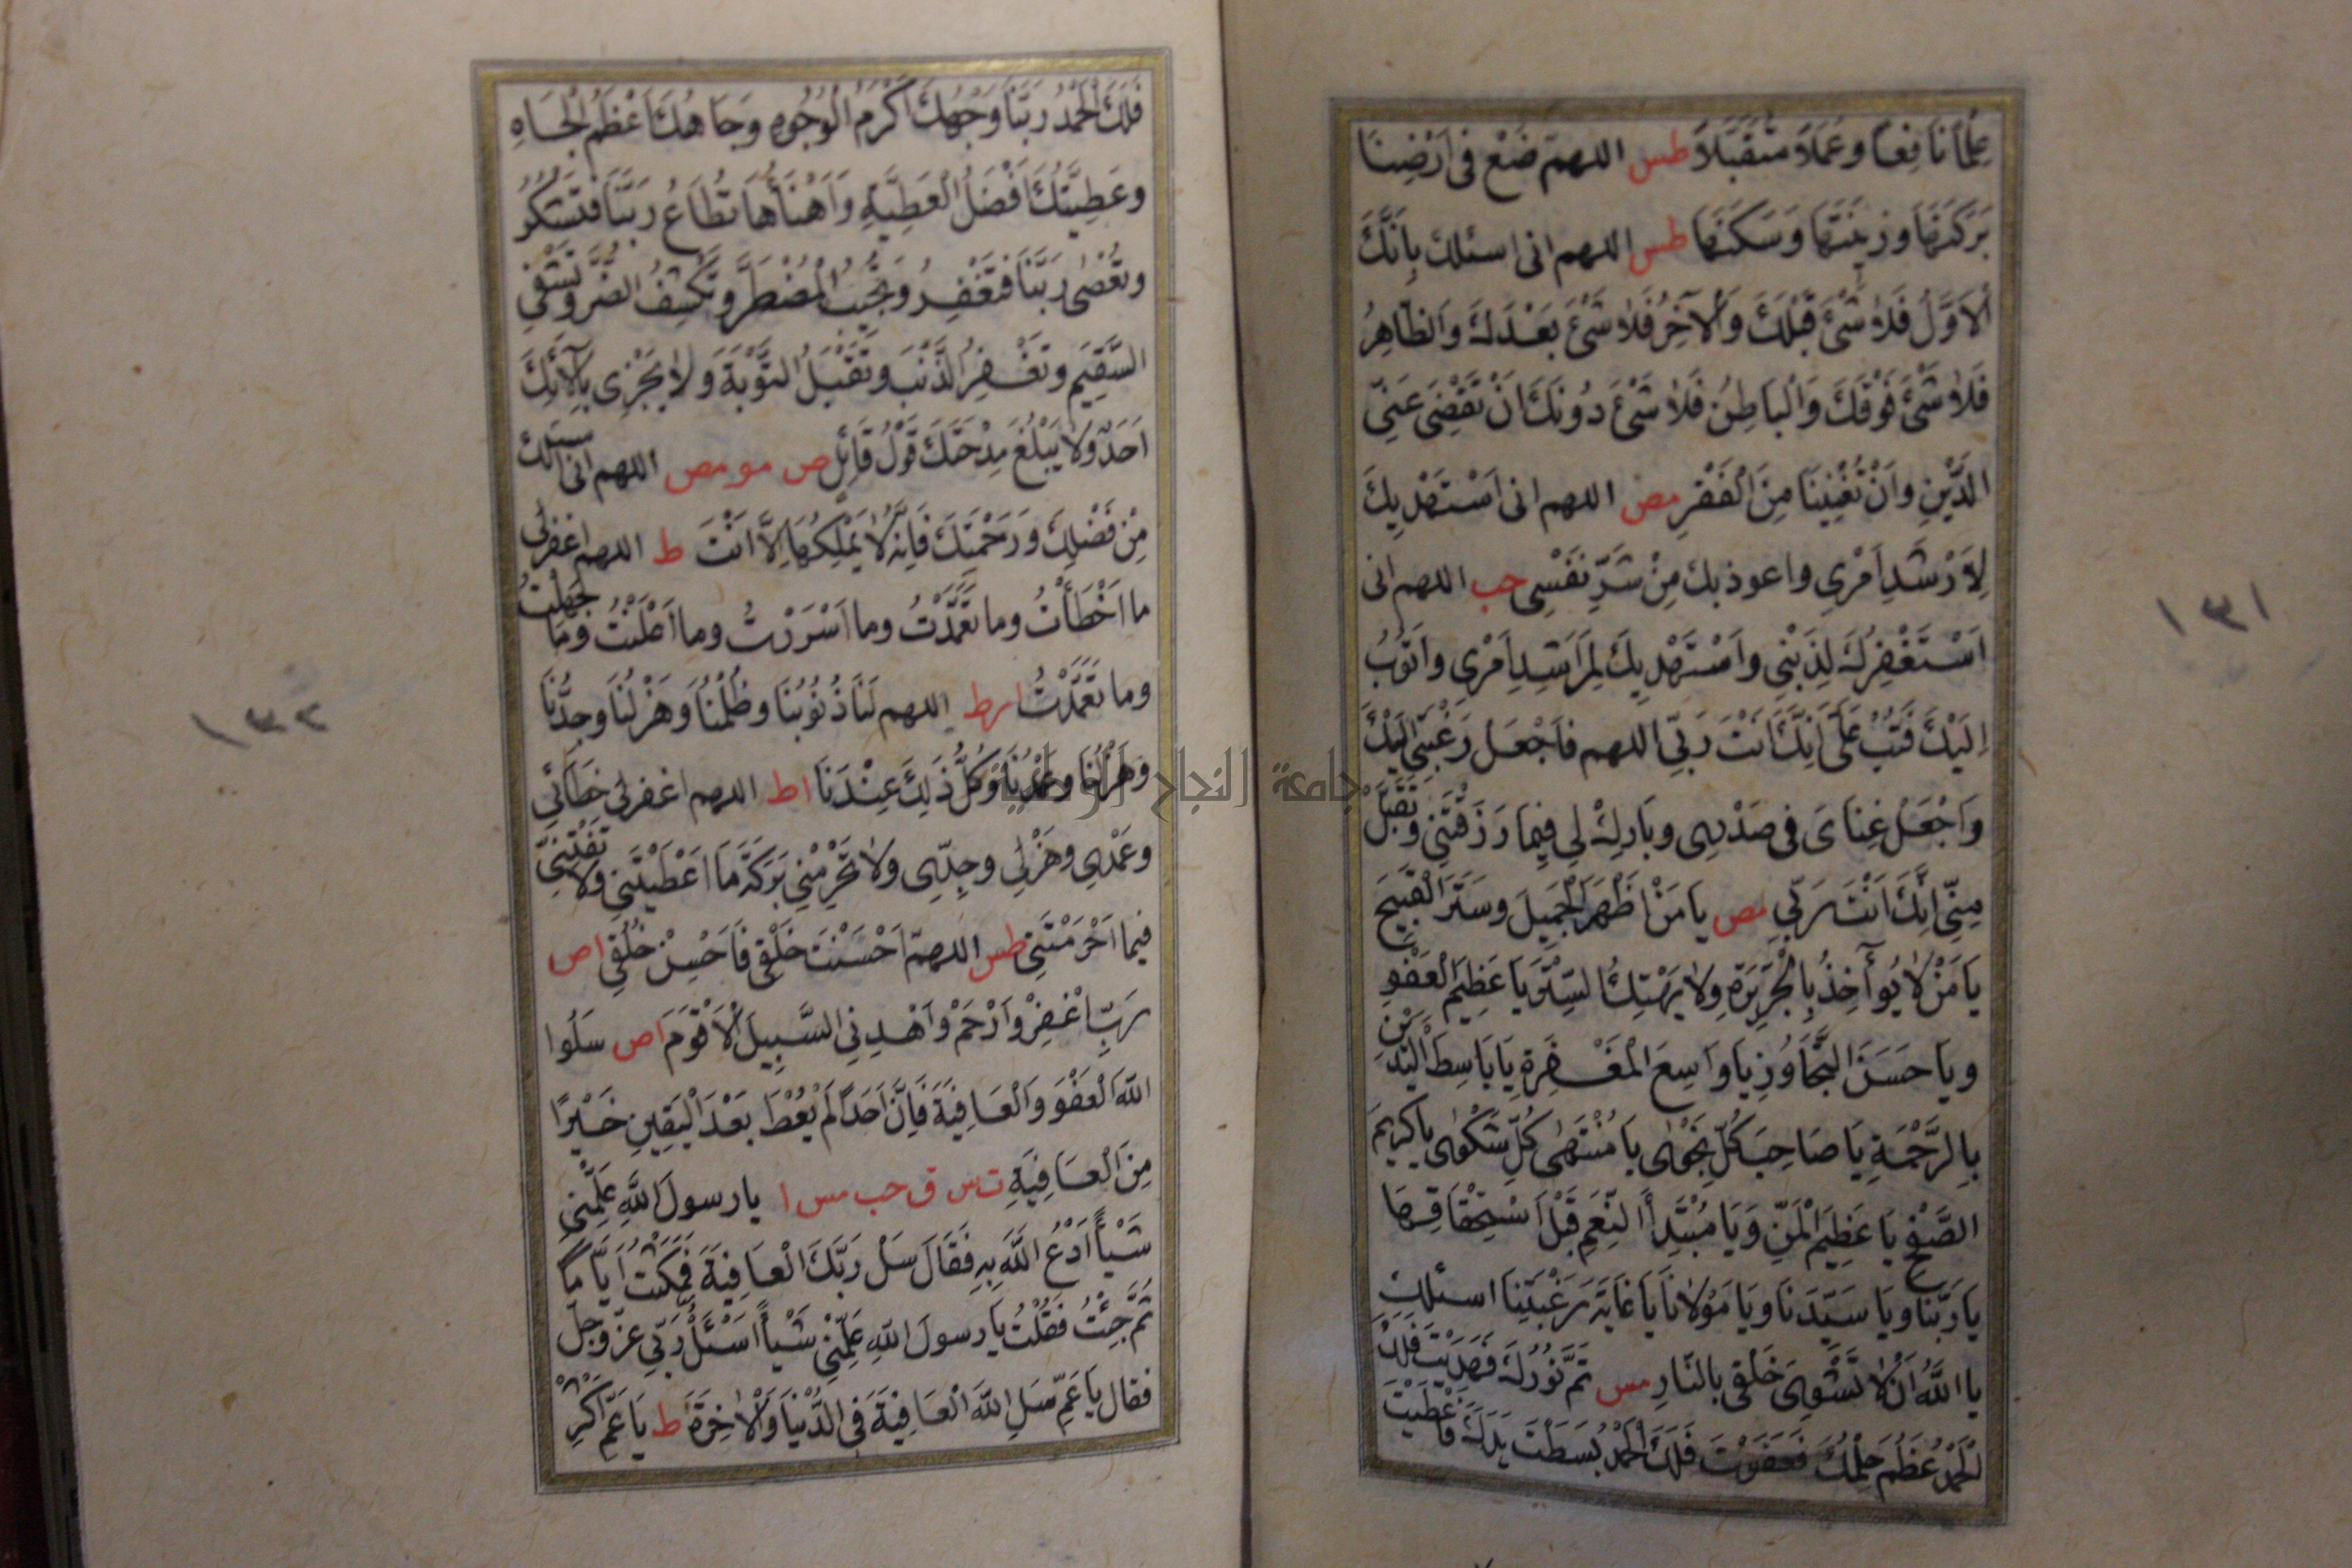 عِلْمًا نَافِعًا وَعَمَلًا مُتَقَبَّلًا طس اللهم ضَعْ فى اَرْضِنَا
بَرَكَتَهَا وَزِينَتَهَا وَسَكَنَهَا طس اللهم انى اسئلك بِاَنَّكَ
الْاَوَّلُ فَلَا شَىْءَ قَبْلَكَ وَالْآخِرُ فَلَا شَىْءَ بَعْدَكَ وَالظَّاهِرُ
فَلَا شَىْءَ فَوْقَكَ وَالْبَاطِنُ فَلَا شَىْءَ دُونَكَ اَنْ تَقْضِىَ عَنِّى
الدَّيْنَ وَاَنْ تُغْنِيَنَا مِنَ الْفَقْرِ مص اللهم انى اَسْتَهْدِيكَ
لِاَرْشَدِ اَمْرِى واعوذ بك مِنْ شَرِّ نَفْسِى حب اللهم انى
اَسْتَغْفِرُكَ لِذَنْبِى وَاَسْتَهْدِيكَ لِمَرَاشِدِ اَمْرِى وَاَتُوبُ
اِلَيْكَ فَتُبْ عَلَىَّ اِنَّكَ اَنْتَ رَبِّى اللهم فَاجْعَلْ رَغْبَتِى اِلَيْكَ
وَاجْعَلْ غِنَاىَ فى صَدْرِى وَبَارِكْ لِى فِيمَا رَزَقْتَنِى وَتَقَبَّلْ
مِنِّى اِنَّكَ اَنْتَ رَبِّى مص يا مَنْ اَظْهَرَ الْجَمِيلَ وَسَتَرَ الْقَبِيحَ
يَا مَنْ لَا يُؤَاخِذُ بِالْجَرِيرَةِ وَلَا يَهْتِكُ السِّتْرَ يَا عَظِيمَ الْعَفْوِ
وَيَا حَسَنَ التَّجَاوُزِ يَا وَاسِعَ الْمَغْفِرَةِ يَا بَاسِطَ الْيَدَيْنِ
بِالرَّحْمَةِ يَا صَاحِبَ كُلِّ نَجْوٰى يَا مُنْتَهٰى كُلِّ شَكْوٰى يَا كَرِيمَ
الصَّفْحِ يَا عَظِيمَ الْمَنِّ وَيَا مُبْتَدِأَ النِّعَمِ قَبْلَ اسْتِحْقَاقِهَا
يَا رَبَّنَا وَيَا سَيِّدَنَا وَيَا مَوْلَانَا يَا غَايَةَ رَغْبَتِنَا اسئلك
يا اللّٰهُ اَنْ لَا تَشْوِىَ خَلْقِى بِالنَّارِ مس تَمَّ نُورُكَ فَهَدَيْتَ فَلَكَ
الْحَمْدُ عَظُمَ حِلْمُكَ فَعَفَوْتَ فَلَكَ الْحَمْدُ بَسَطْتَ يَدَكَ فَاَعْطَيْتَ
١٣١
فَلَكَ الْحَمْدُ رَبَّنَا وَجْهُكَ اَكْرَمُ الْوُجُوهِ وَجَاهُكَ اَعْظَمُ الْجَاهِ
وَعَطِيَّتُكَ اَفْضَلُ الْعَطِيَّةِ وَاَهْنَأُهَا تُطَاعُ رَبَّنَا فَتَشْكُرُ
وَتُعْصٰى رَبَّنَا فَتَغْفِرُ وَتُجِيبُ الْمُضْطَرَّ وَتَكْشِفُ الضُّرَّ وَتَشْفِى
السَّقِيمَ وَتَغْفِرُ الذَّنْبَ وَتَقْبَلُ التَّوْبَةَ وَلَا يَجْزِى بِآلَائِكَ
اَحَدٌ وَلَا يَبْلُغُ مِدْحَتَكَ قَوْلُ قَائِلٍ ص مو مص اللهم انى اسئلك
مِنْ فَضْلِكَ وَرَحْمَتِكَ فَاِنَّهُ لَا يَمْلِكُهَا اِلَّا اَنْتَ ط اللهم اغفرلى
ما اَخْطَأْتُ وما تَعَمَّدْتُ وما اَسْرَرْتُ وما اَعْلَنْتُ وَمَا جَهِلْتُ
وما تَعَمَّدْتُ ا ر ط اللهم لَنَا ذُنُوبُنَا وَظُلْمُنَا وَهَزْلُنَا وَجِدُّنَا
وَعَمْدُنَا وَكُلُّ ذٰلِكَ عِنْدَنَا ا ط اللهم اغفرلى خَطَائِى
وَعَمْدِى وَهَزْلِى وَجِدِّى وَلَا تَحْرِمْنِى بَرَكَةَ مَا اَعْطَيْتَنِى وَلَا تَفْتِنِّى
فِيمَا اَحْرَمْتَنِى طس اللهمّ اَحْسَنْتَ خَلْقِى فَاَحْسِنْ خُلُقِى ا ص
رَبِّ اغْفِرْ وَارْحَمْ وَاهْدِنِى السَّبِيلَ الْاَقْوَمَ ا ص سَلُوا
اللّٰهَ الْعَفْوَ وَالْعَافِيَةَ فَاِنَّ اَحَدًا لَمْ يُعْطَ بَعْدَ الْيَقِينِ خَيْرًا
مِنَ الْعَافِيَةِ ت س ق حب مس ا يا رسولَ اللّٰهِ عَلِّمْنِى
شَيْأً اَدْعُ اللّٰهَ بِهِ فَقَالَ سَلْ رَبَّكَ الْعَافِيَةَ فَمَكَثْتُ اَيَّامًا
ثُمَّ جِئْتُ فَقُلْتُ يَا رسولَ اللّٰهِ عَلِّمْنِى شَيْأً اَسْئَلُ رَبِّى عَزَّ وَجَلَّ
فقال يَا عَمِّ سَلِ اللّٰهَ الْعَافِيَةَ فى الدُّنْيَا وَالْآخِرَةِ ط يَا عَمِّ اَكْثِرْ
١٣٢
جامعة النجاح الوطنية